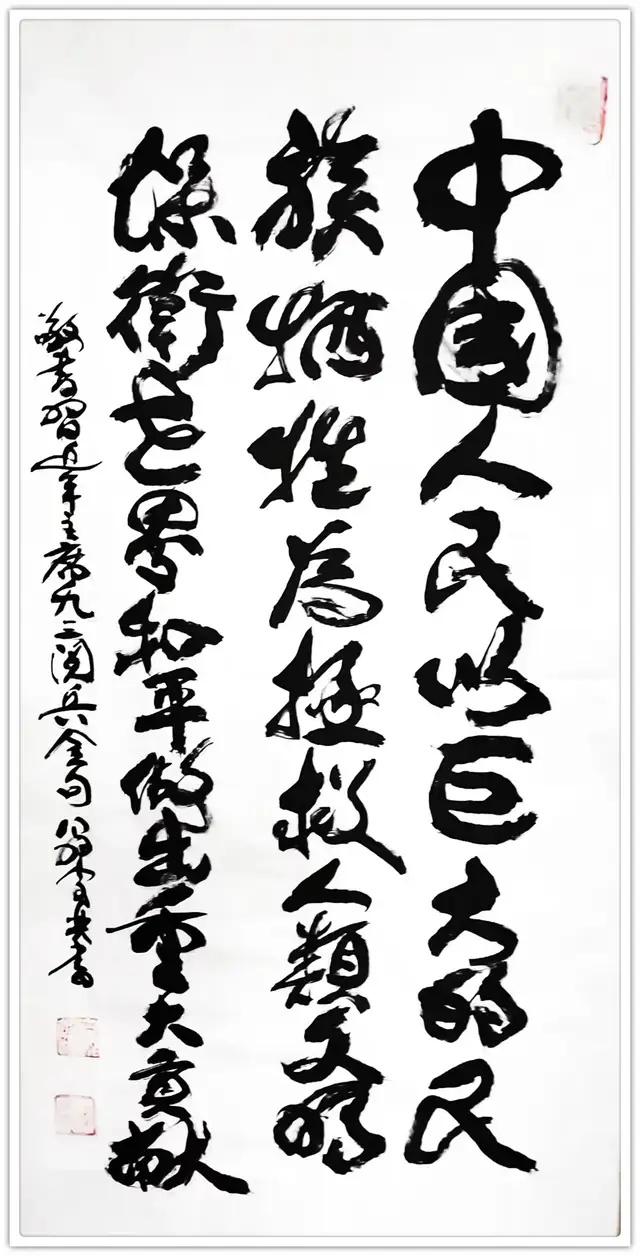 中國人民以巨大的民
族牺牲為拯救人類文明
保衛世界和平做出重大貢献
敬書習近平主席九三閱兵金句